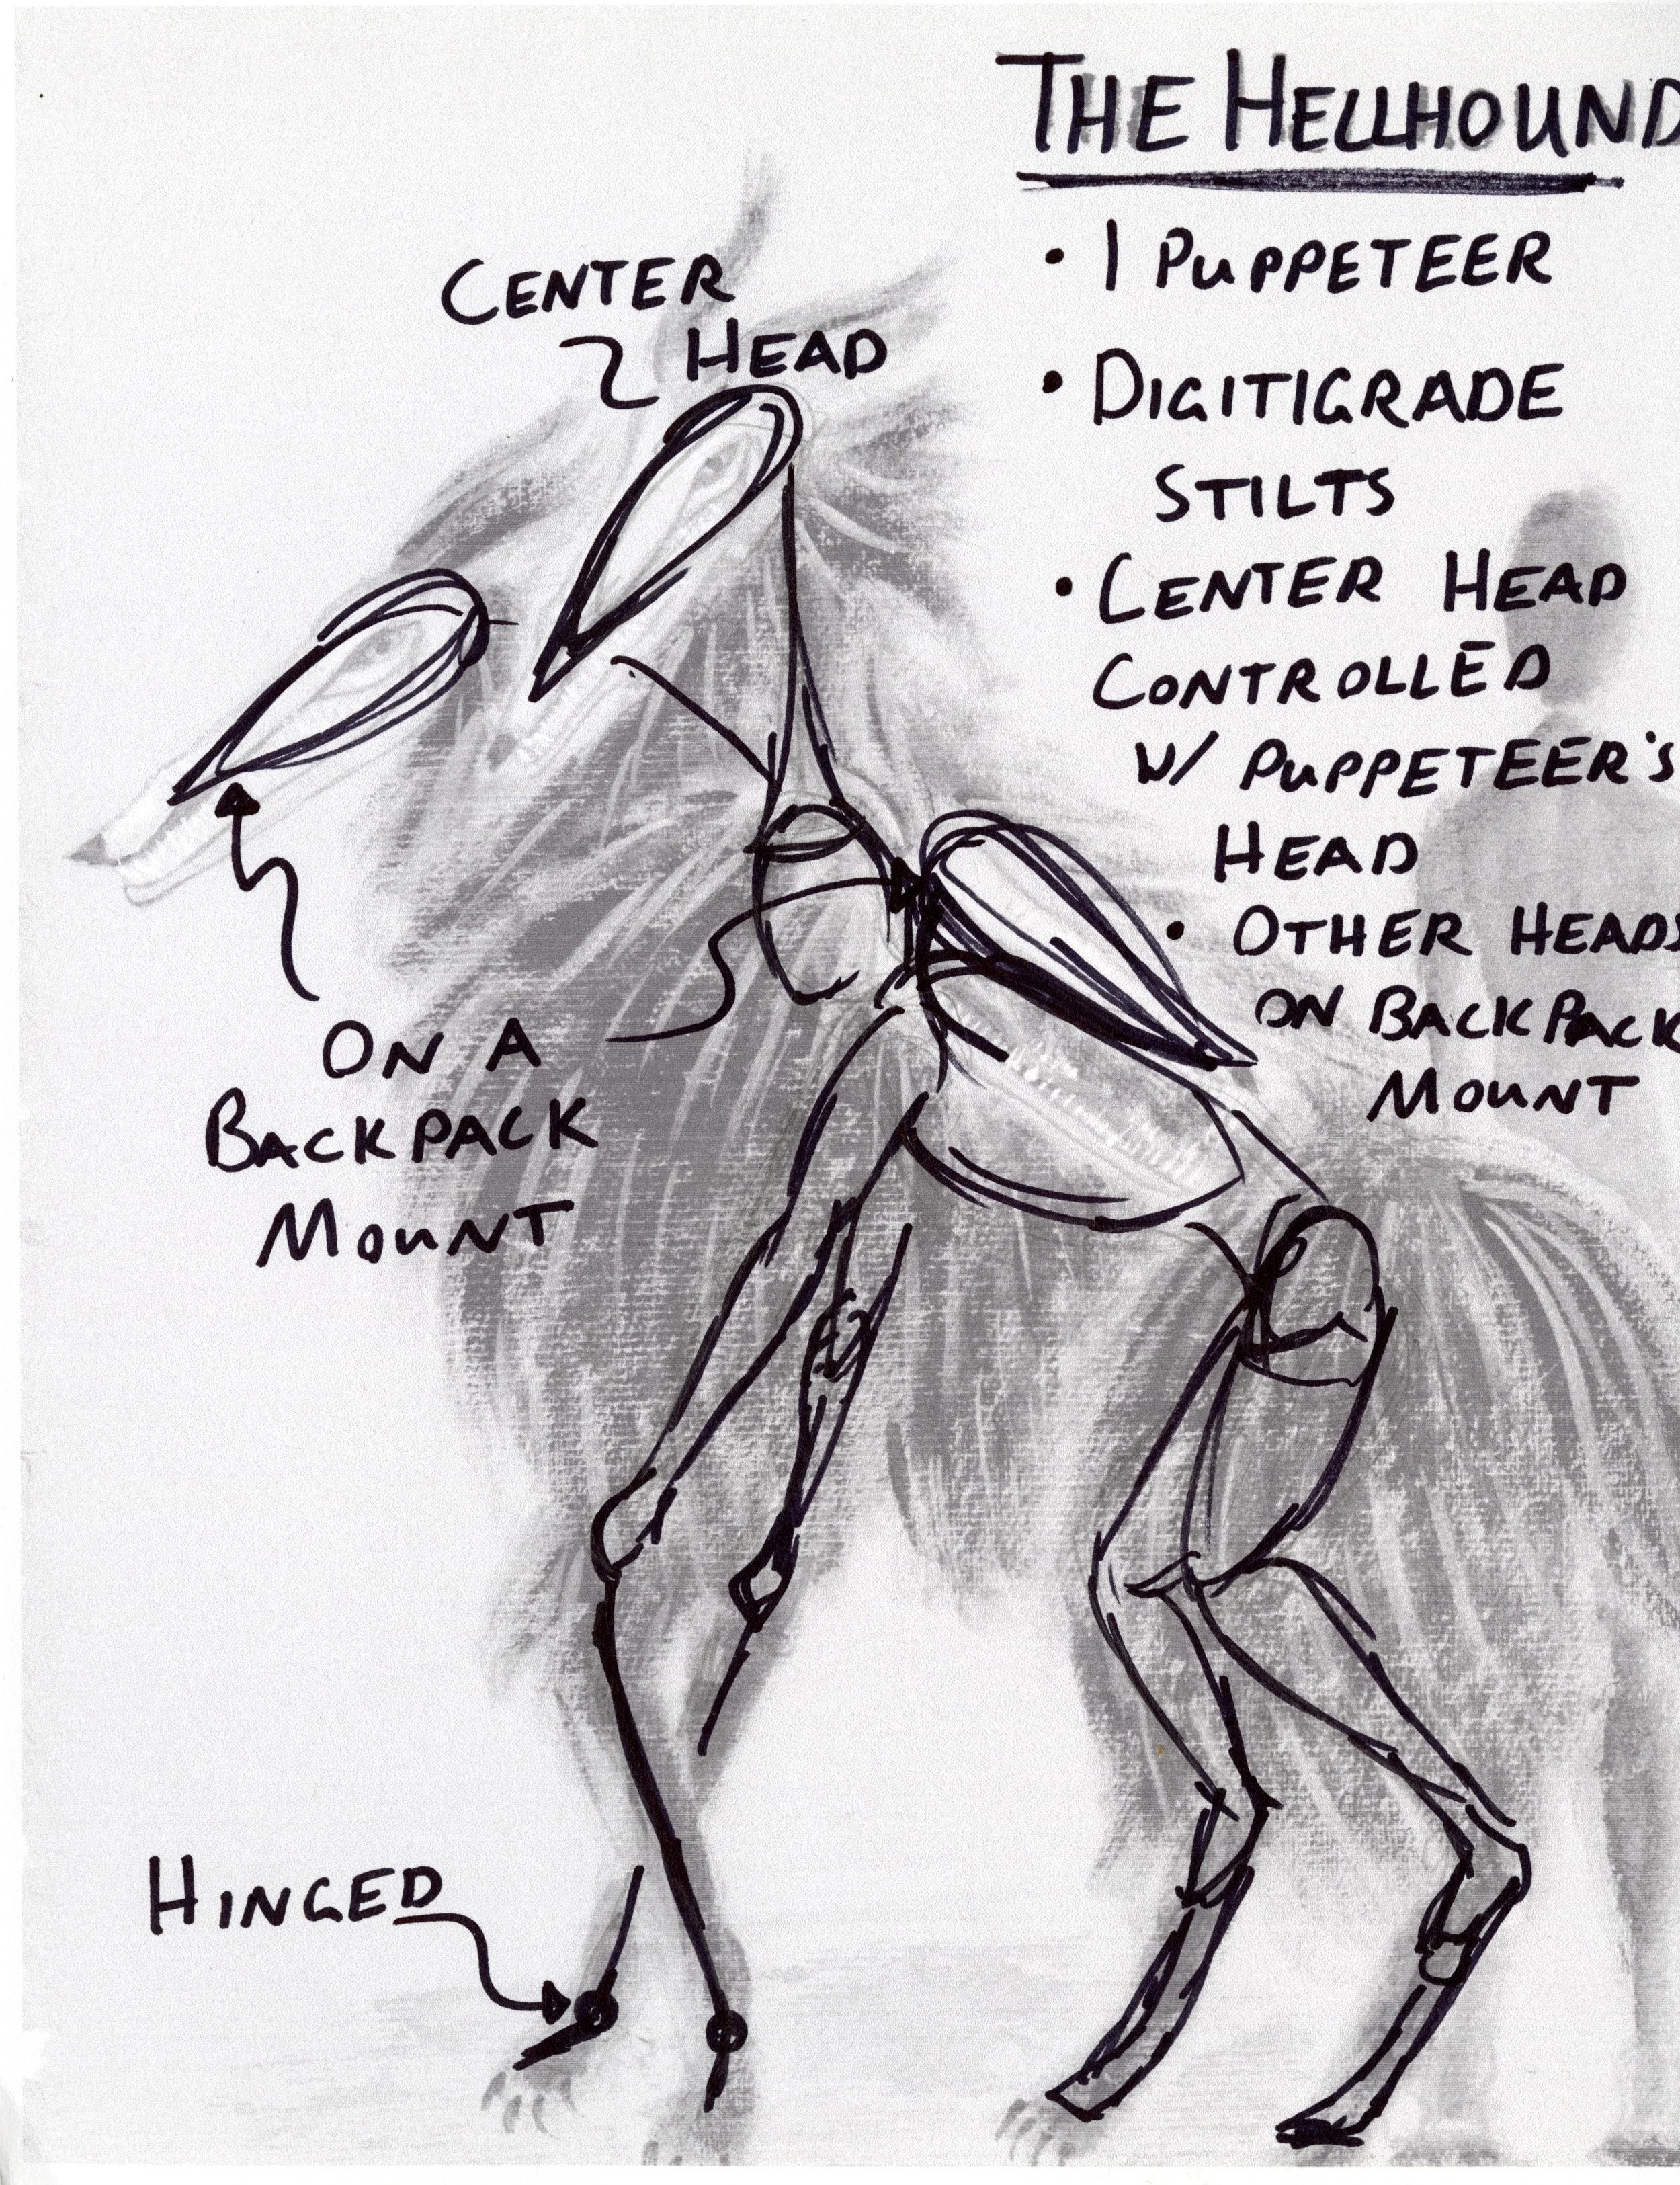 THE HELLHOUND
• 1 PUPPETEER
• DIGITIGRADE
STILTS
• CENTER HEAD
CONTROLLED
W/ PUPPETEER'S
HEAD
• OTHER HEADS
ON BACKPACK
MOUNT
CENTER
HEAD
ON A
BACKPACK
MOUNT
HINGED